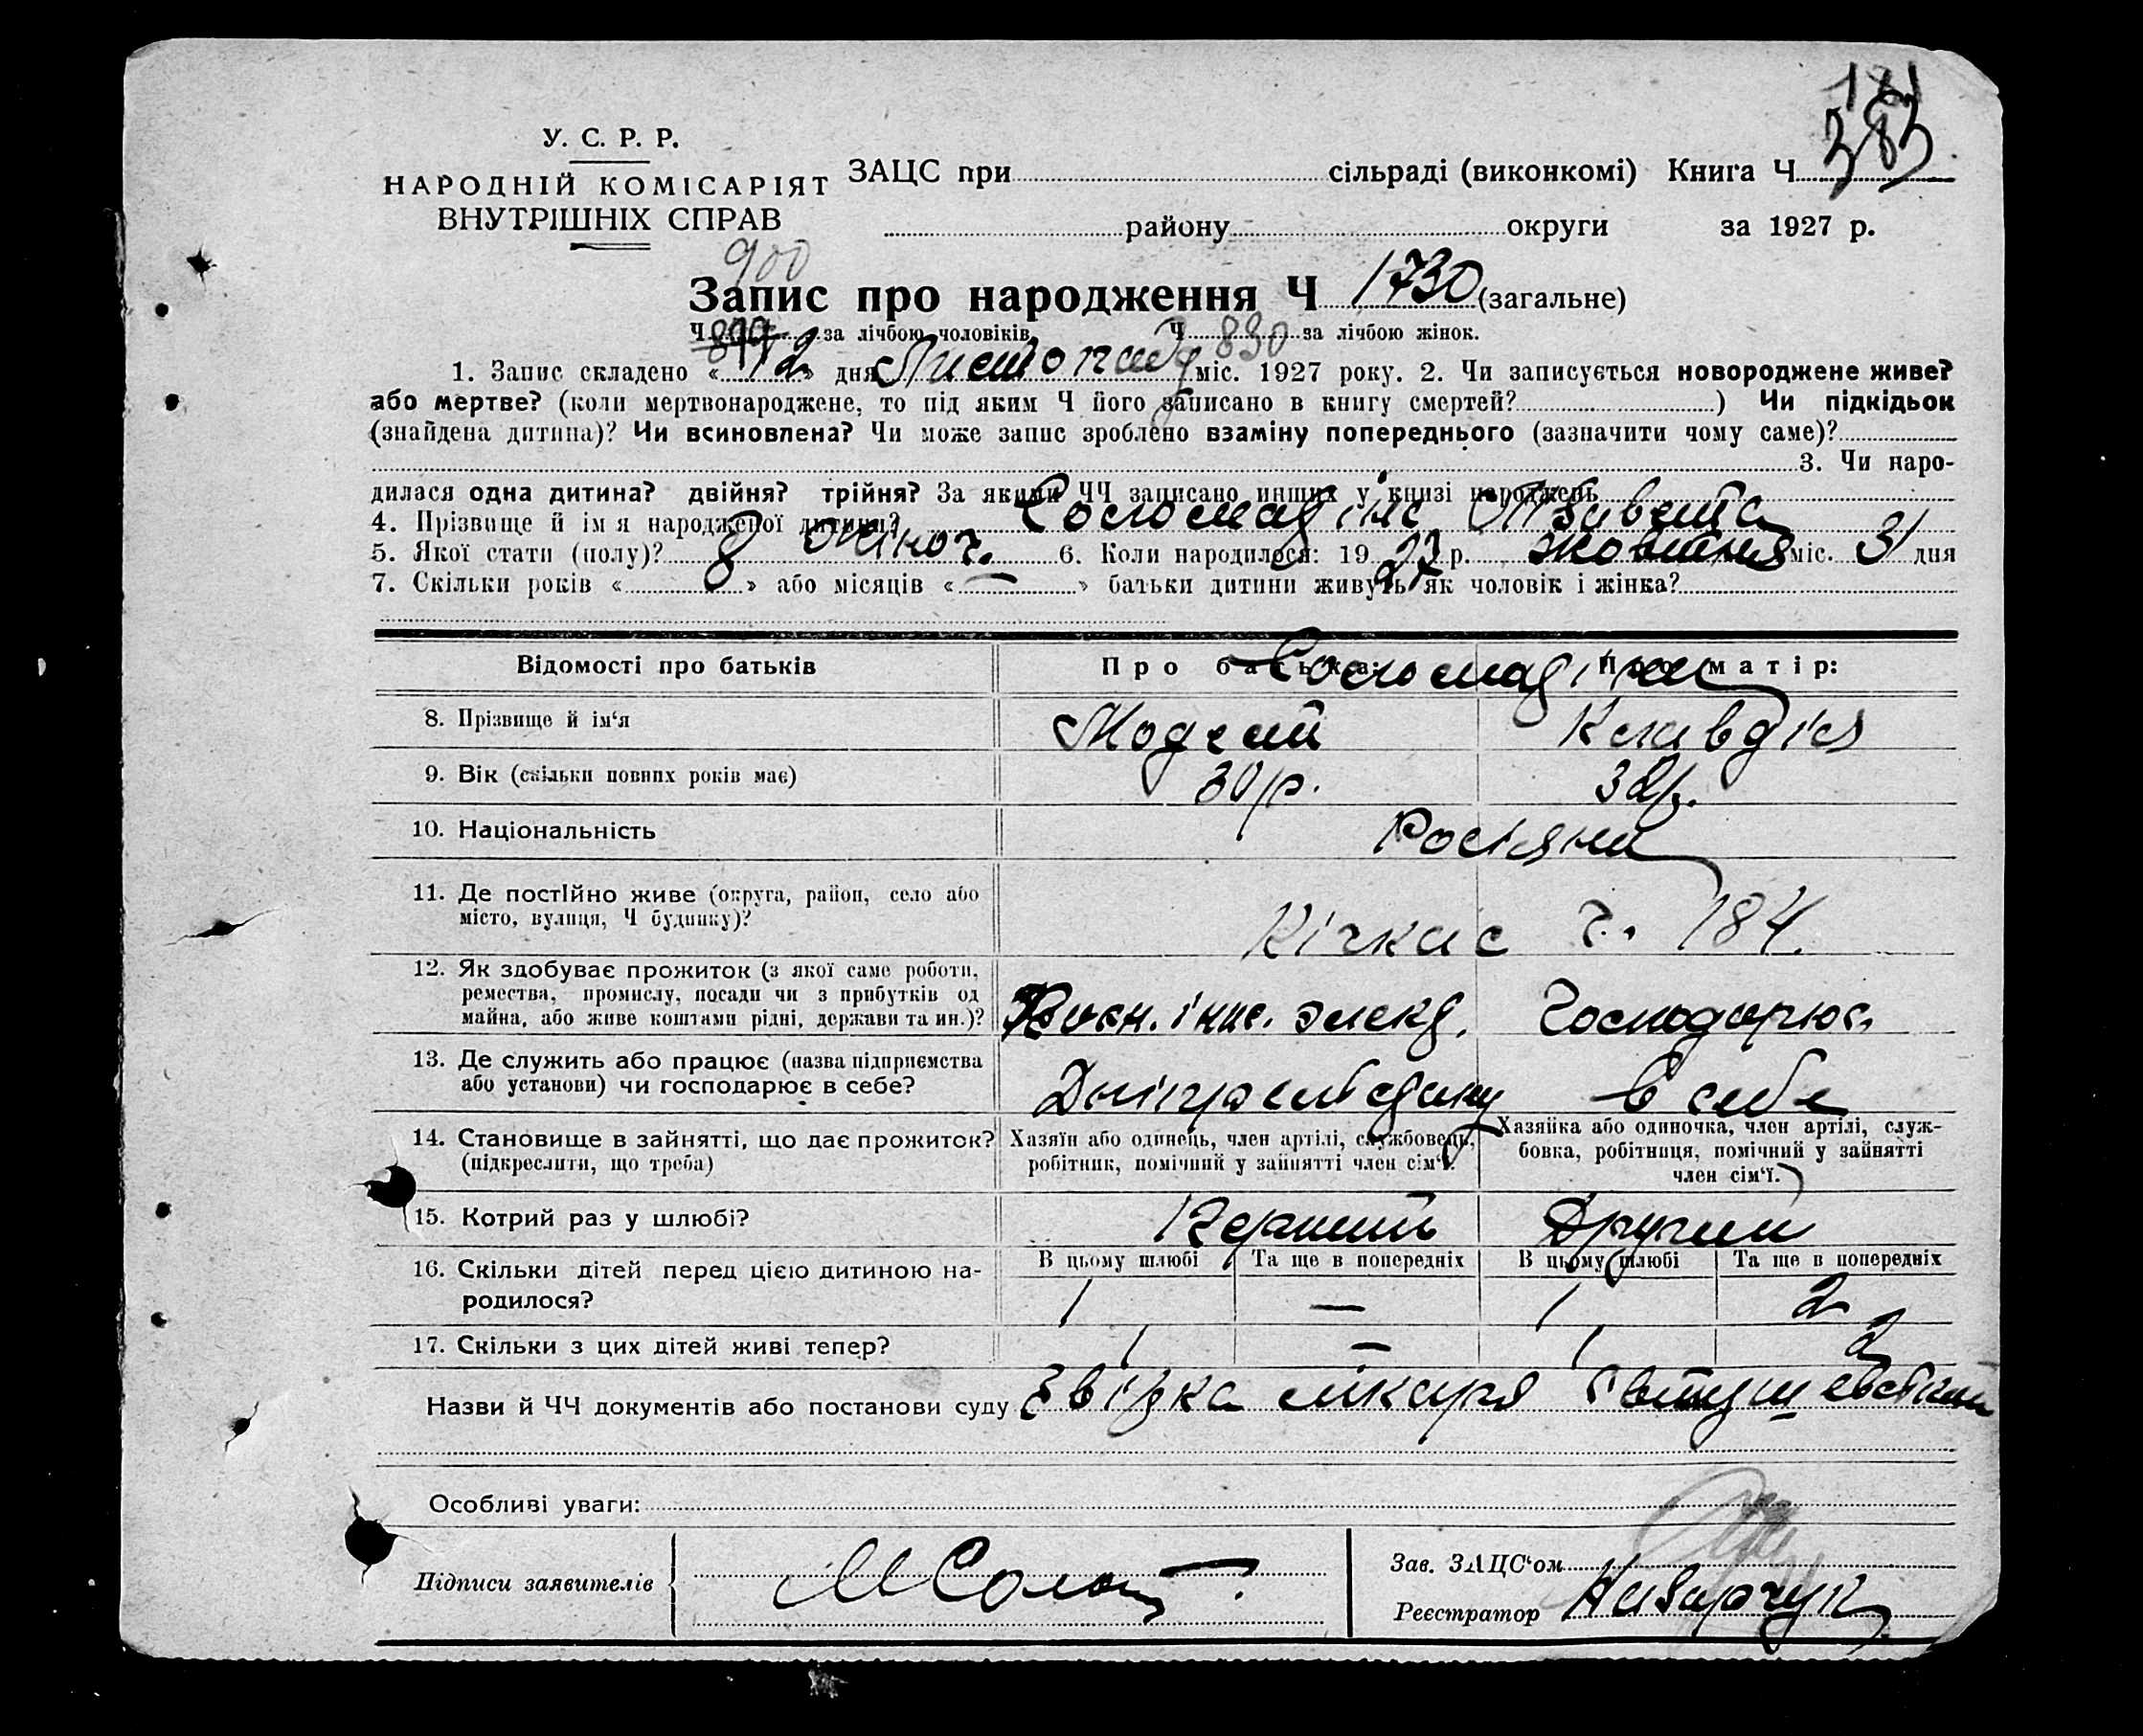 383
У. С. Р. Р.
НАРОДНІЙ КОМІСАРІЯТ
ВНУТРІШНІХ СПРАВ
ЗАЦС при сільраді (виконкомі) Книга Ч
району округи за 1927 р.
900
Запис про народження Ч 1730 (загальне)
Ч 899 за лічбою чоловіків. Ч 830 за лічбою жінок.
1. Запис складено « 12 » дня Листопаду міс. 1927 року. 2. Чи записується новороджене живе?
або мертве? (коли мертвонароджене, то під яким Ч його записано в книгу смертей? ) Чи підкідьок
(знайдена дитина)? Чи всиновлена? Чи може запис зроблено взаміну попереднього (зазначити чому саме)?
3. Чи наро-
дилася одна дитина? двійня? трійня? За якими ЧЧ записано инших у книзі народжень
4. Прізвище й ім я народженої дитини?
5. Якої статі (полу)? жіноч. 6. Коли народилося: 19 27 р. жовтня міс. 31 дня
7. Скільки років « 8 » або місяців « — » батьки дитини живуть як чоловік і жінка?
Відомості про батьків
Про батька:
Про матір:
8. Прізвище й ім‘я
Клавдія
9. Вік (скільки повних років має)
30 р.
32 р.
10. Національність
Росіяни
11. Де постІйно живе (округа, район, село або
місто, вулиця, Ч будинку)?
Кічкас ч. 184.
12. Як здобуває прожиток (з якої саме роботи,
ремества, промислу, посади чи з прибутків од
майна, або живе коштами рідні, держави та ин.)?
13. Де служить або працює (назва підприємства
або установи) чи господарює в себе?
в себе
14. Становище в зайнятті, що дає прожиток?
(підкреслити, що треба)
Хазяїн або одинець, член артілі, службовець,
робітник, помічний у зайнятті член сім‘ї.
Хазяйка або одиночка, член артілі, служ-
бовка, робітниця, помічний у зайнятті
член сім‘ї.
15. Котрий раз у шлюбі?
Перший
Другий
16. Скільки дітей перед цією дитиною на-
родилося?
В цьому шлюбі
Та ще в попередніх
В цьому шлюбі
Та ще в попередніх
1
—
1
2
17. Скільки з цих дітей живі тепер?
1
—
1
2
Назви й ЧЧ документів або постанови суду
лікаря
Особливі уваги:
Підписи заявителів
Зав. ЗАЦС‘ом
Реєстратор